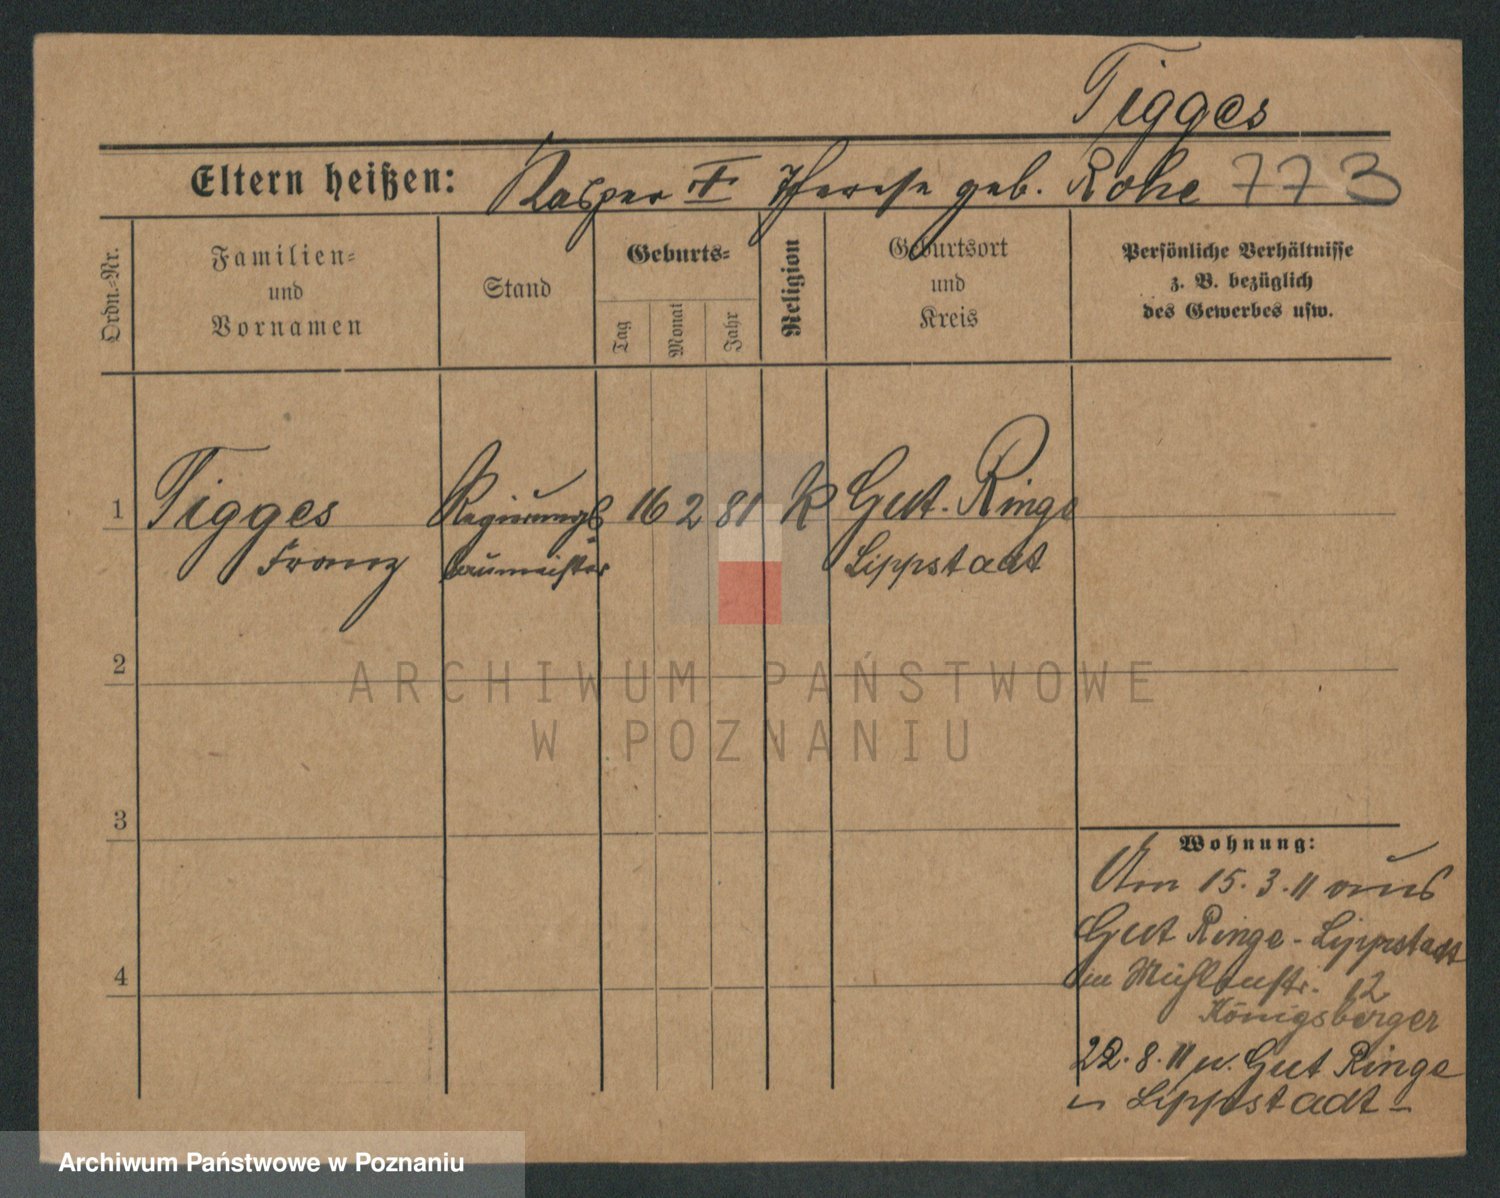 Tigges
Eltern heißen: Kasper T Therese geb. Rohe 773
Ordn.-Nr.
Familien-
und
Vornamen
Stand
Geburts-
Tag
Monat
Jahr
Religion
Geburtsort
und
Kreis
Persönliche Verhältnisse
z. B. bezüglich
des Gewerbes usw.
1 Tigges Regierungs 16 2 81 K Gut. Ringe
Franz baumeister Lippstadt
2
ARCHIWUM PAŃSTWOWE
W POZNANIU
3
Wohnung:
Am 15.3.11 aus
Gut Ringe - Lippstadt
in Mühlenstr. 12
Königsberger
22.8.11 n. Gut Ringe
Lippstadt -
4
Archiwum Państwowe w Poznaniu